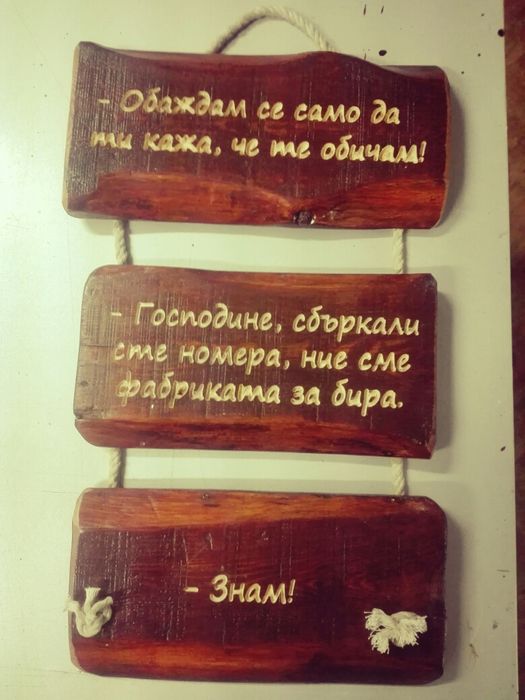 - Обаждам се само да
ти кажа, че те обичам!
- Господине, сбъркали
сте номера, ние сме
фабриката за бира.
- Знам!